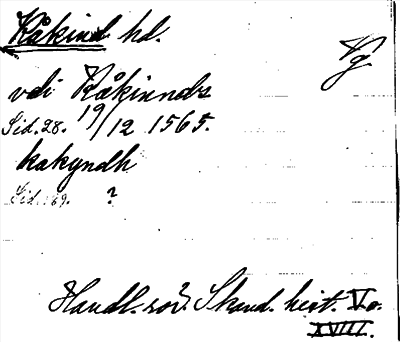 Kåkind hd.
Vg
vdi Kåkinnds
Sid. 28. 19/12 1565.
kakyndh
Sid. 169. ?
Handl. rör. Skand. hist. V o.
XVIII.